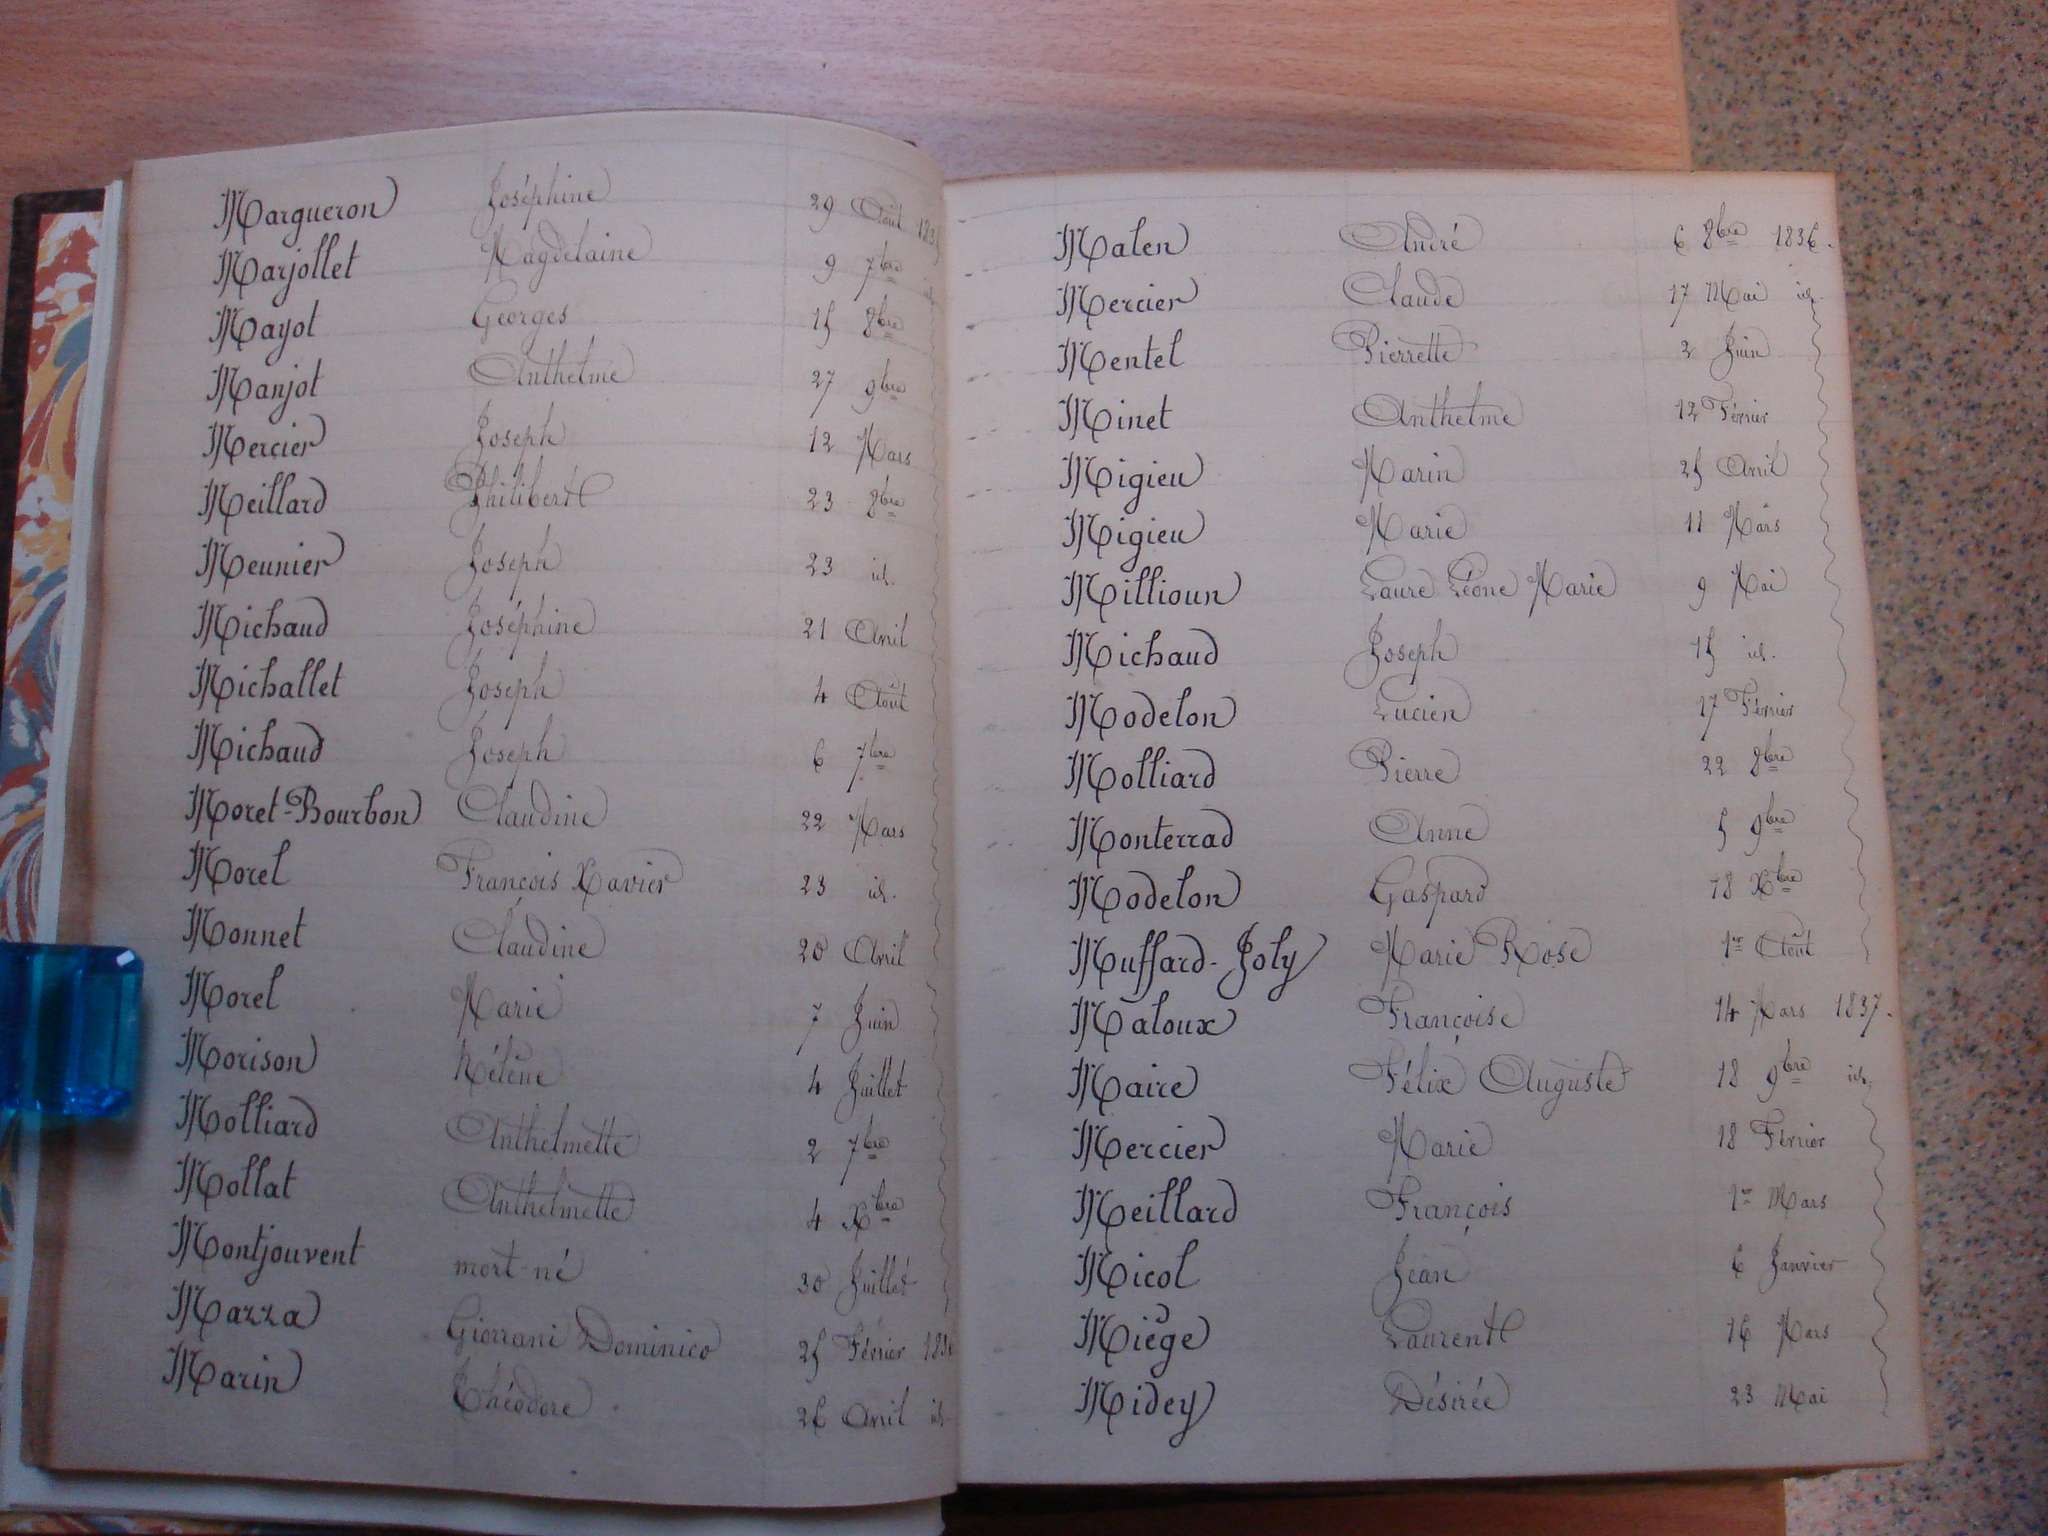 Margueron Joséphine 29 Août 1835
Marjollet Magdelaine 9 7bre id.
Mayot Georges 15 8bre
Manjot Anthelme 27 9bre
Mercier Joseph 12 Mars
Meillard Philibert 23 8bre
Meunier Joseph 23 id.
Michaud Joséphine 21 Avril
Michallet Joseph 4 Août
Michaud Joseph 6 7bre
Moret-Bourbon Claudine 22 Mars
Morel François Xavier 23 id.
Monnet Claudine 20 Avril
Morel Marie 7 Juin
Morison Hélène 4 Juillet
Molliard Anthelmette 2 7bre
Mollat Anthelmette 4 Xbre
Montjouvent mort-né 30 Juillet
Mazza Dominico 25 Février
Marin Théodore 26 Avril id.
Malen André 6 8bre 1836.
Mercier Claude 17 Mai id.
Mentel Pierrette 2 Juin
Minet Anthelme 12 Février
Migieu Marin 25 Avril
Migieu Marie 11 Mars
Millioun Laure Léone Marie 9 Mai
Michaud Joseph 15 id.
Modelon Lucien 17 Février
Molliard Pierre 22 8bre
Monterrad Anne 5 9bre
Modelon Gaspard 18 Xbre
Muffard-Joly Marie Rose 1er Août
Maloux Françoise 14 Mars 1837.
Maire Félix Auguste 18 9bre id.
Mercier Marie 18 Février
Meillard François 1er Mars
Micol Jean 6 Janvier
Miège Laurent 16 Mars
Midey Désirée 23 Mai